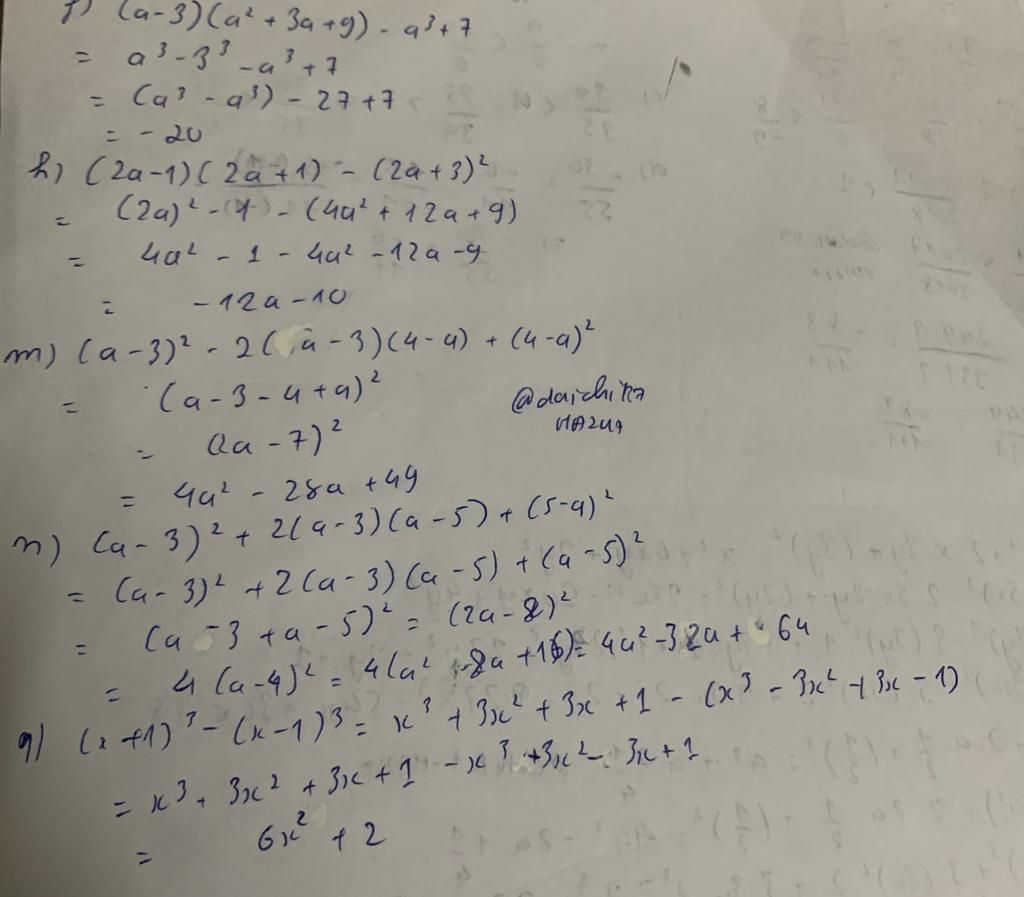 f) (a-3)(a² + 3a+9) - a³+7
= a³ - 3³ - a³ + 7
= (a³ - a³) - 27 + 7
= - 20
h) (2a-1)(2a+1) - (2a+3)²
= (2a)² - 1 - (4a² + 12a + 9)
= 4a² - 1 - 4a² - 12a - 9
= -12a - 10
m) (a-3)² - 2(a-3)(4-a) + (4-a)²
= (a - 3 - 4 + a)²
@daichi
= (2a - 7)²
= 4a² - 28a + 49
n) (a-3)² + 2(a-3)(a-5) + (5-a)²
= (a-3)² + 2(a-3)(a-5) + (a-5)²
= (a - 3 + a - 5)² = (2a - 8)²
= 4(a-4)² = 4(a² - 8a + 16) = 4a² - 32a + 64
q) (x+1)³ - (x-1)³ = x³ + 3x² + 3x + 1 - (x³ - 3x² + 3x - 1)
= x³ + 3x² + 3x + 1 - x³ + 3x² - 3x + 1
= 6x² + 2